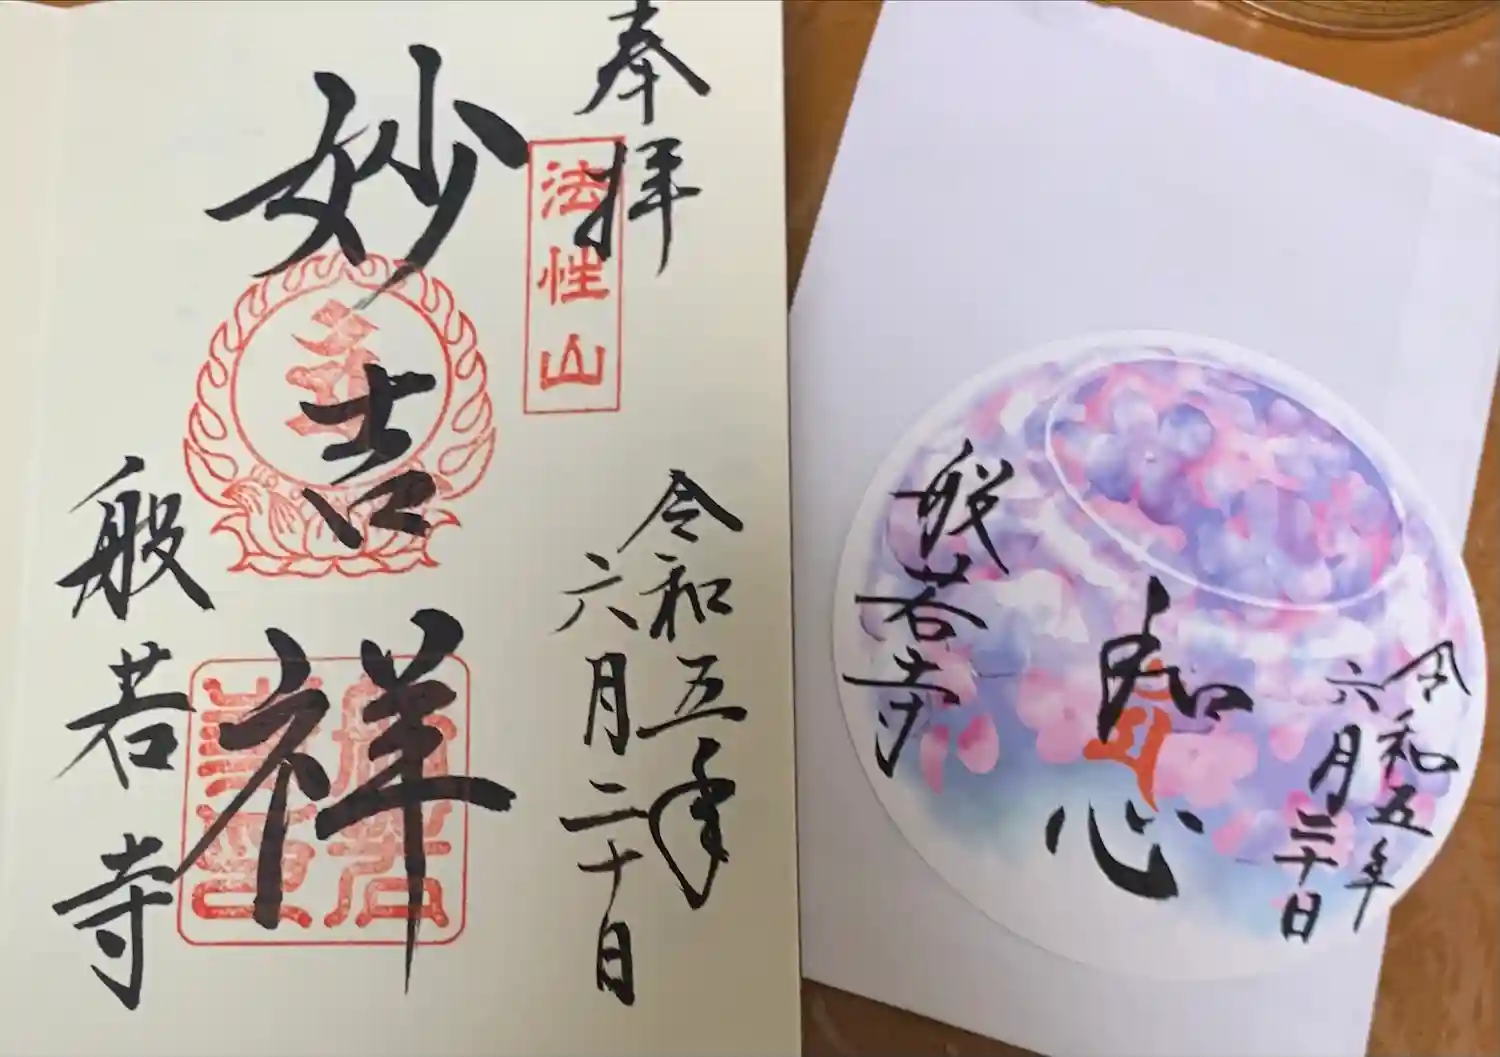 奉拝
法性山
令和五年
六月二十日
妙吉祥
般若寺
令和五年
六月二十日
和心
般若寺